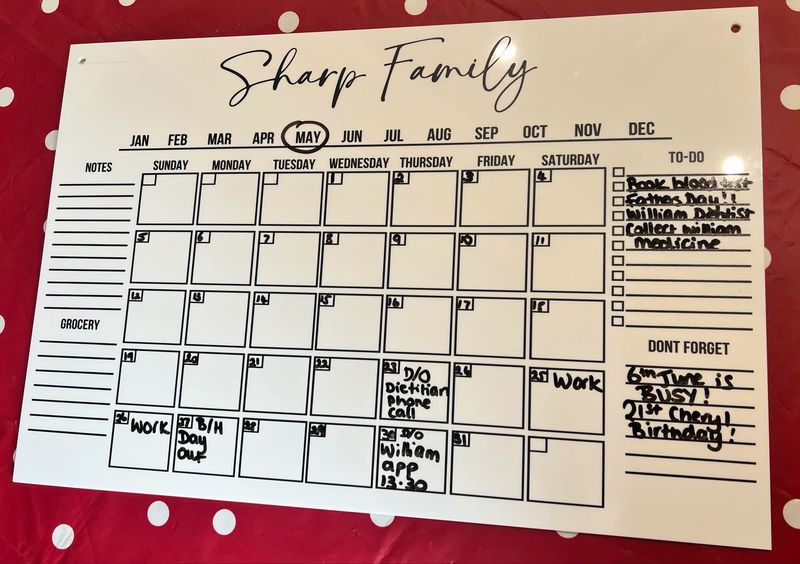 Sharp Family
JAN FEB MAR APR MAY JUN JUL AUG SEP OCT NOV DEC
NOTES
SUNDAY MONDAY TUESDAY WEDNESDAY THURSDAY FRIDAY SATURDAY
1 2 3 4
5 6 7 8 9 10 11
12 13 14 15 16 17 18
19 20 21 22 23 D/O
Dietitian
phone
call
24
25 Work
26 Work
27 B/H
Day
Out
28 29
30 D/O
William
app
13.30
31
GROCERY
TO-DO
Book blood test
Fathers Day!!
William Dentist
Collect William
medicine
DONT FORGET
6th June is
BUSY!
21st Cheryl
Birthday!